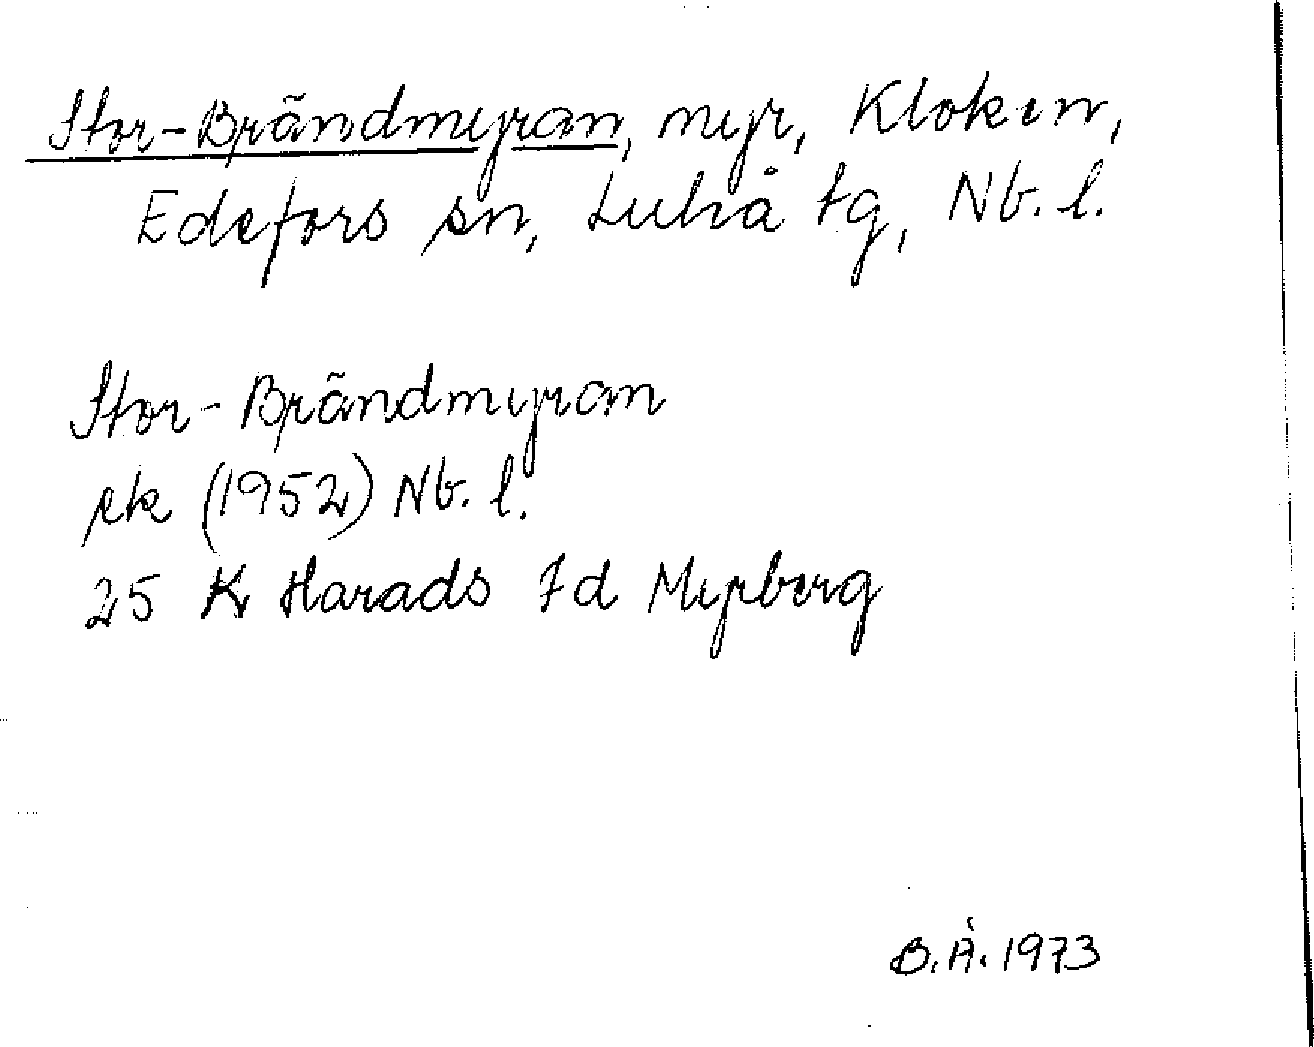 Stor-Brändmyran, myr, Kloken,
Edefors sn, Luleå tg, Nb. l.
Stor-Brändmyran
rk (1952) Nb. l.
25 K Harads 7d Myrberg
B.Å. 1973